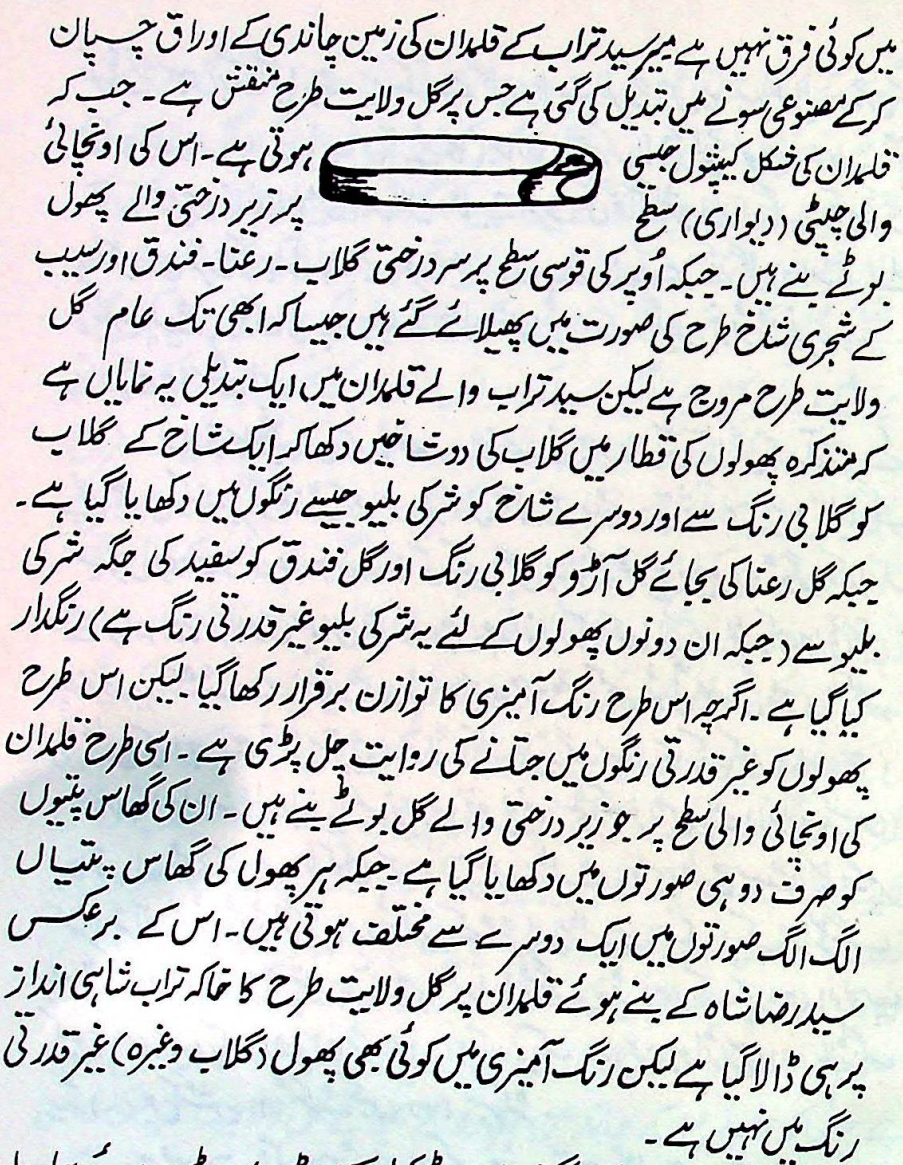 میں کوئی فرق نہیں ہے میر سید تراب کے قلمدان کی زمین چاندی کے اوراق چسپان
کرکے مصنوعی سونے میں تبدیل کی گئی ہے جس پر گل ولایت طرح منقش ہے۔ جب کہ
قلمدان کی شکل کیپٹول جیسی ہوتی ہے۔ اس کی اونچائی
والی چپٹی (دیواری) سطح پر زیر درختی والے پھول
بوٹے بنے ہیں۔ جبکہ اُوپر کی قوسی سطح پر سر درختی گلاب۔ رعنا۔ فندق اور سیب
کے شجری شاخ طرح کی صورت میں پھیلائے گئے ہیں جیسا کہ ابھی تک عام گل
ولایت طرح مروج ہے لیکن سید تراب والے قلمدان میں ایک تبدیلی یہ نمایاں ہے
کہ متذکرہ پھولوں کی قطار میں گلاب کی دو شاخیں دکھا کر ایک شاخ کے گلاب
کو گلابی رنگ سے اور دوسرے شاخ کو شرکی بلیو جیسے رنگوں میں دکھایا گیا ہے۔
جبکہ گل رعنا کی بجائے گل آڑو کو گلابی رنگ اور گل فندق کو سفید کی جگہ شرکی
بلیو سے (جبکہ ان دونوں پھولوں کے لئے یہ شرکی بلیو غیر قدرتی رنگ ہے) رنگدار
کیا گیا ہے۔ اگرچہ اس طرح رنگ آمیزی کا توازن برقرار رکھا گیا لیکن اس طرح
پھولوں کو غیر قدرتی رنگوں میں جتانے کی روایت چل پڑی ہے۔ اسی طرح قلمدان
کی اونچائی والی سطح پر جو زیر درختی والے گل بوٹے بنے ہیں۔ ان کی گھاس پتیوں
کو صرف دو ہی صورتوں میں دکھایا گیا ہے۔ جبکہ ہر پھول کی گھاس پتیاں
الگ الگ صورتوں میں ایک دوسرے سے مختلف ہوتی ہیں۔ اس کے برعکس
سید رضا شاہ کے بنے ہوئے قلمدان پر گل ولایت طرح کا خاکہ تراب شاہی انداز
پر ہی ڈالا گیا ہے لیکن رنگ آمیزی میں کوئی بھی پھول (گلاب وغیرہ) غیر قدرتی
رنگ میں نہیں ہے۔